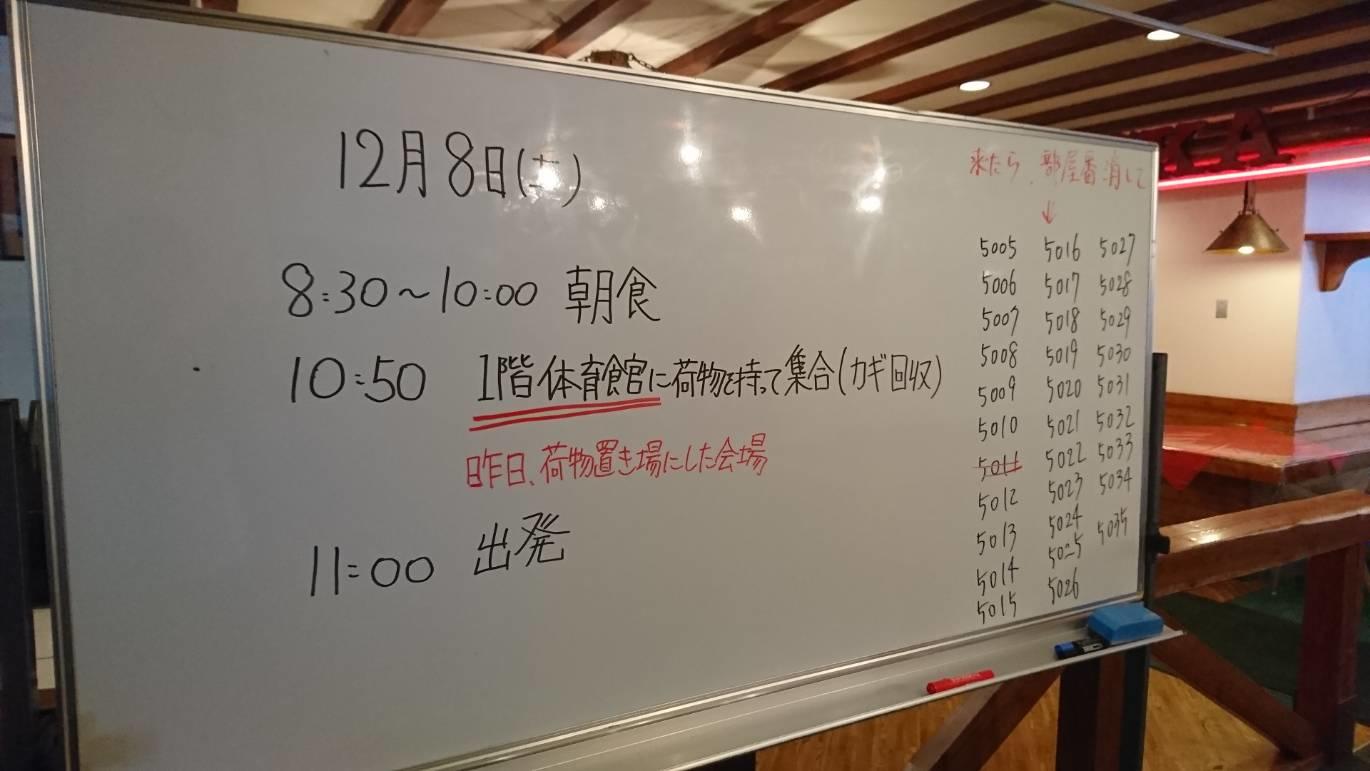 12月8日(土)
8:30～10:00 朝食
10:50 1階体育館に荷物を持って集合(カギ回収)
昨日、荷物置き場にした会場
11:00 出発
来たら、部屋番消して
↓
5005 5016 5027
5006 5017 5028
5007 5018 5029
5008 5019 5030
5009 5020 5031
5010 5021 5032
5011 5022 5033
5012 5023 5034
5013 5024 5035
5014 5025
5015 5026
KA